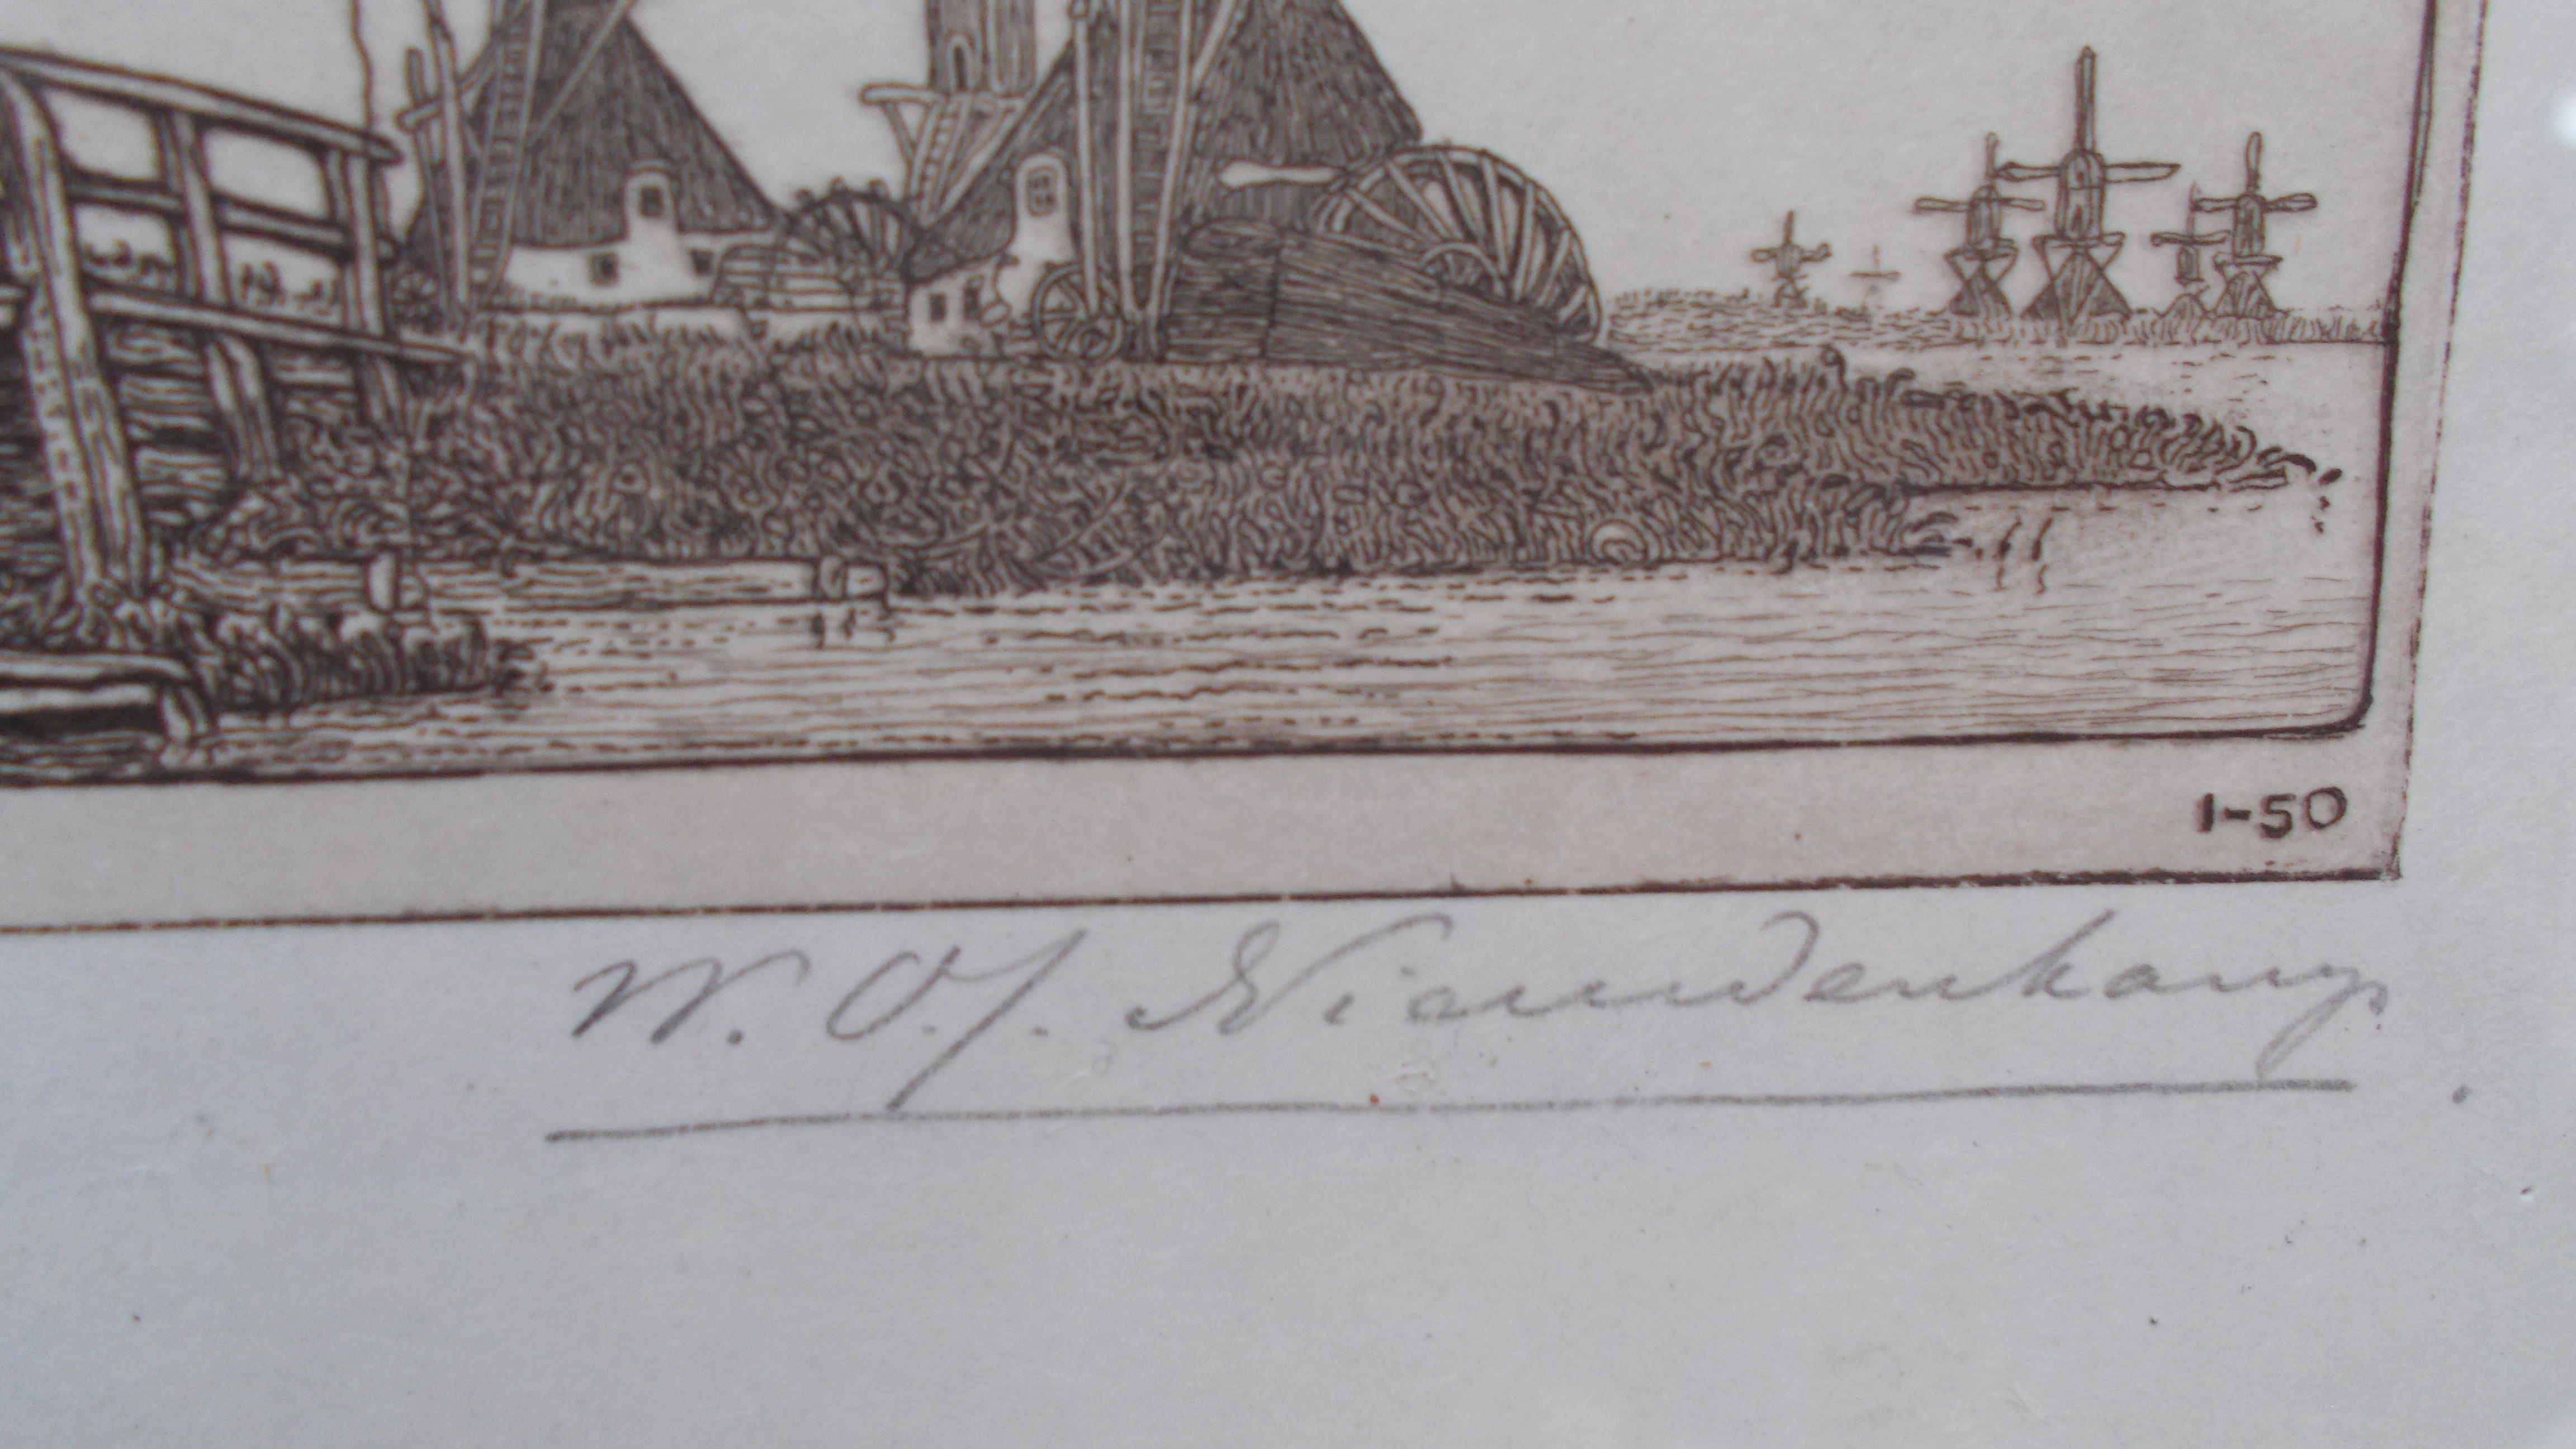 1-50
W. O. J. Nieuwenkamp.